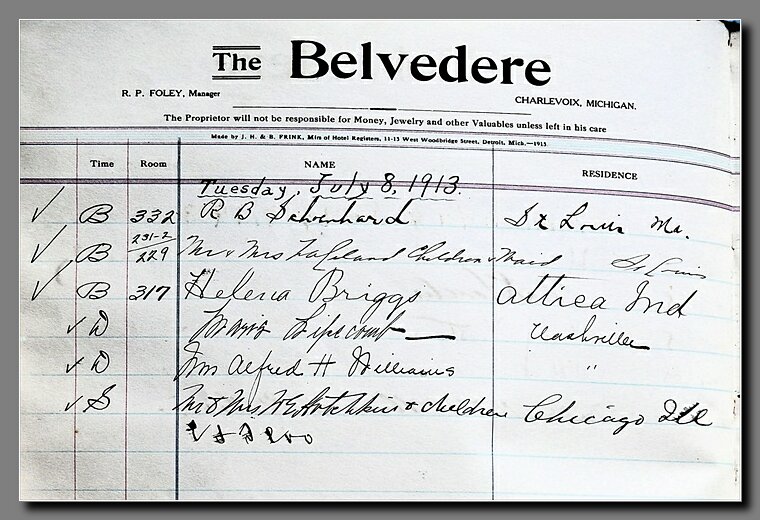 The Belvedere
R. P. FOLEY, Manager
CHARLEVOIX, MICHIGAN.
The Proprietor will not be responsible for Money, Jewelry and other Valuables unless left in his care
Made by J. H. & B. FRINK, Mfrs of Hotel Registers, 11-15 West Woodbridge Street, Detroit, Mich.—1913
Time Room NAME RESIDENCE
Tuesday, July 8, 1913.
B 332 R B St Louis Mo.
231-2
B 229 Mr & Mrs Children & Maid St Louis
B 317 Helena Briggs Attica Ind
D Lipscomb Nashville
D Alfred H Williams "
S Mr & Mrs Hotchkiss & children Chicago Ill